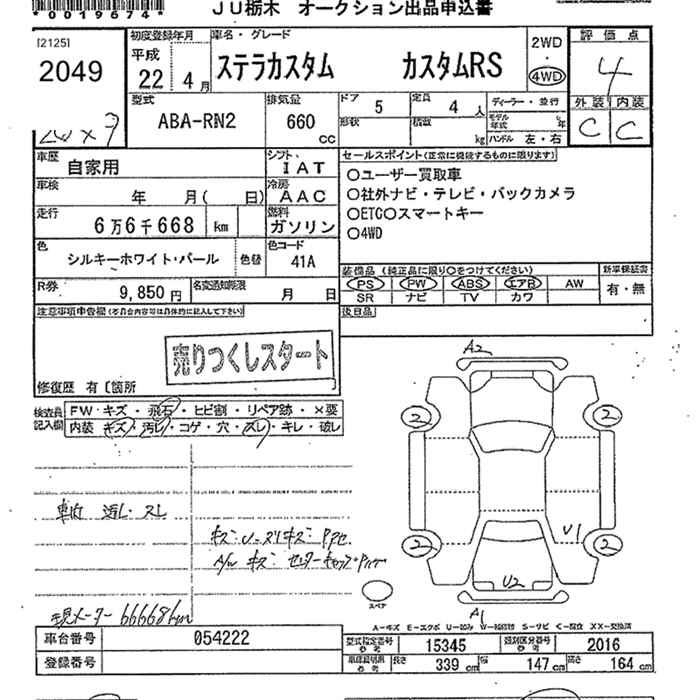 *0019674*
JU栃木 オークション出品申込書
[2125]
2049
初度登録年月
平成
22年 4月
車名・グレード
ステラカスタム カスタムRS
2WD
・
4WD
評価点
4
外装 内装
C C
型式
ABA-RN2
排気量
660 cc
ドア 5
定員 4 人
形状
積載 kg
ディーラー・並行
モデル年式 年
ハンドル 左・右
車歴
自家用
シフト
IAT
車検
年 月( 日)
冷房
AAC
走行
6万6千668 km
燃料
ガソリン
色
シルキーホワイト・パール
色替
色コード
41A
R券
9,850 円
名変通知期限
月 日
セールスポイント(正常に機能するものに限ります)
○ユーザー買取車
○社外ナビ・テレビ・バックカメラ
○ETC○スマートキー
○4WD
装備品(純正品に限り○をつけてください)
PS PW ABS エアB AW
SR ナビ TV カワ
新車保証書
有・無
後日品
注意事項申告欄(不具合内容等は具体的に記入して下さい)
売りつくしスタート
修復歴 有〔箇所
検査員記入欄
FW・キズ・飛石・ヒビ割・リペア跡・×要
内装 キズ・汚レ・コゲ・穴・スレ・キレ・破レ
現メーター 66668km
A2
2 2
2 2
U1
U2
A1
スペア
A-キズ E-エクボ U-凹み W-補修跡 S-サビ C-腐食 XX-交換済
車台番号
054222
登録番号
型式指定番号 参考
15345
類別区分番号 参考
2016
車検証明細 参考
長さ 339 cm
幅 147 cm
高さ 164 cm